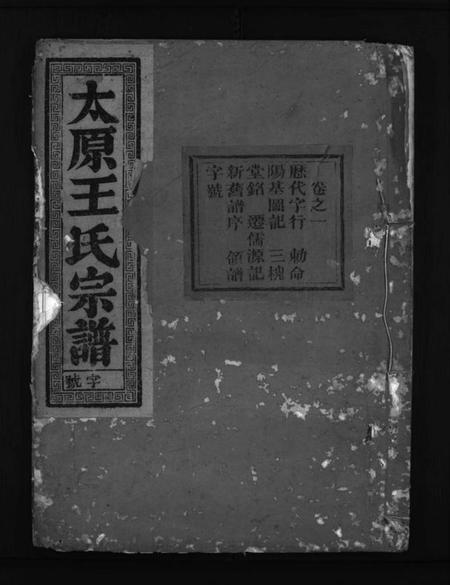 太原王氏宗譜
字號
卷之一
歷代字行 勅命
陽基圖記 三槐
堂銘 遷儒源記
新舊譜序 領譜
字號